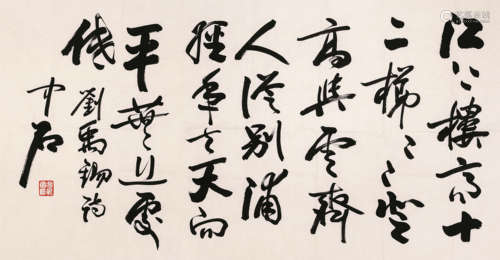 江上樓高十
二梯梯梯登
高與雲齊
人從別浦
經年去天向
平蕪盡處
低 劉禹錫詩
中石